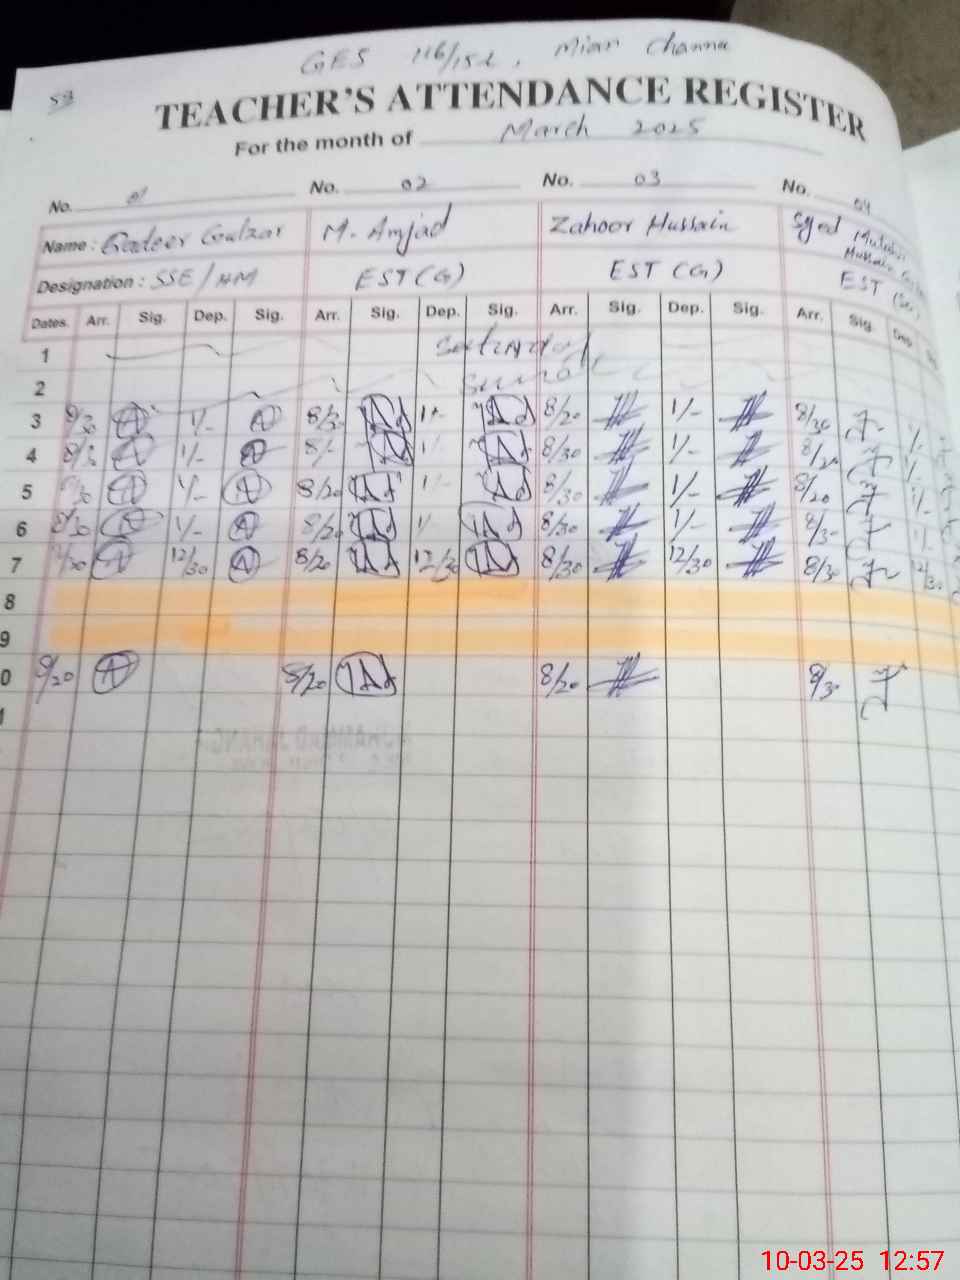 GES 116/15L, Mian Channu
53
TEACHER'S ATTENDANCE REGISTER
For the month of March 2025
No. 01 No. 02 No. 03 No. 04
Name : Qadeer Gulzar M. Amjad Zahoor Hussain Syed
Hussain
Designation : SSE/HM EST (G) EST (G) EST
Dates. Arr. Sig. Dep. Sig. Arr. Sig. Dep. Sig. Arr. Sig. Dep. Sig. Arr. Sig. Dep.
1 Saturday
2 Sunday
3 8/30 1/- 8/30 1/- 8/20 1/- 8/30 1/-
4 8/30 1/- 8/- 1/- 8/30 1/- 8/20 1/-
5 1/- 8/20 1/- 8/30 1/- 8/20 1/-
6 8/30 1/- 8/20 1/ 8/30 1/- 8/30 1/-
7 12/30 8/20 12/30 8/30 12/30 8/30 12/30
8
9
0 8/20 8/20 8/20 8/30
1
10-03-25 12:57